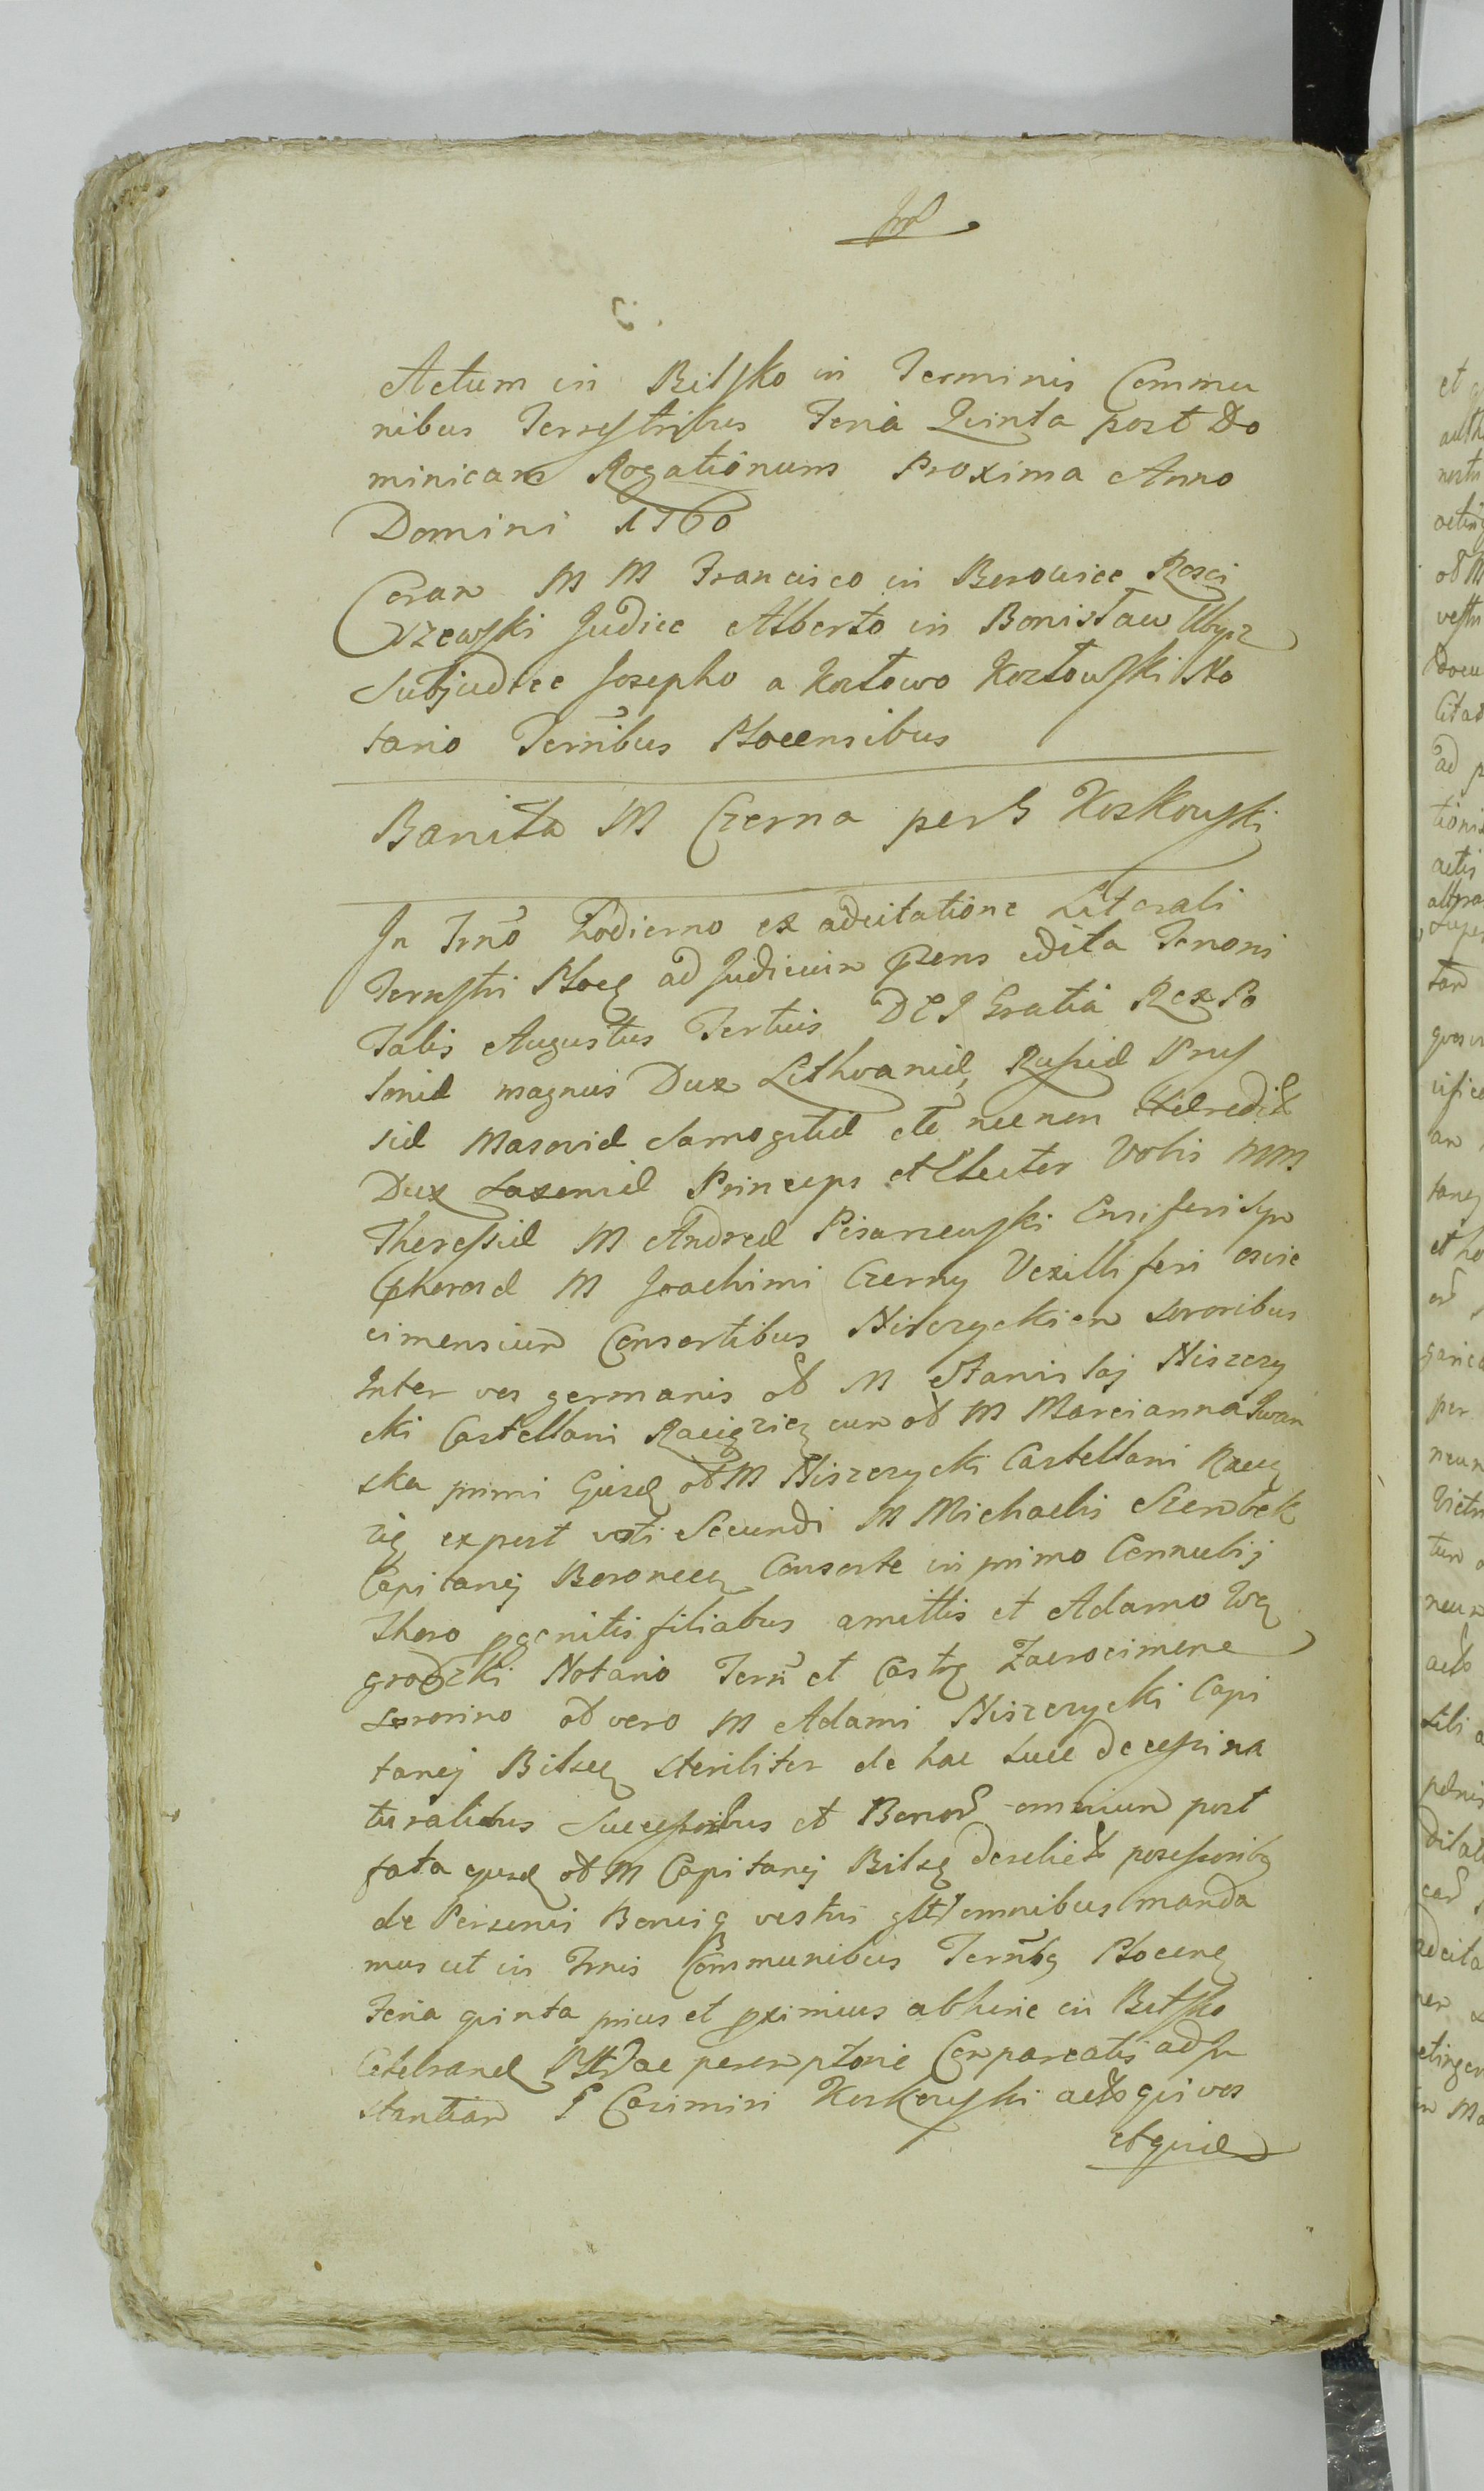 Actum in Bilsko in Terminis Commu
nibus Terrestribus Feria Quinta post Do
minicam Rogationum Proxima Anno
Domini 1760
Coram M M Francisco in Borowice Rosci
szewski Judice Alberto in Bonisław Ubysz
Subjudice Josepho a Kozłowo Kozłowski No
tario Terribus Plocensibus
Banita M Czerna per G Koskowski
In Trno hodierno ex adcitatione Literali
Terrestri Plocen ad Judicium pns edita Tenoris
Talis Augustus Tertius DEI Gratia Rex Po
loniæ magnus Dux Lithvaniæ, Russiæ Prus
siæ Masoviæ Samogitiæ etc necnon Hæredit
Dux Saxoniæ Princeps et Elector Vobis MM
Theressiæ M Andreæ Pisarzewski Ensiferi
M Joachimi Czerny Vexilliferi oswie
cimensium Consortibus Niszczyckien sororibus
Inter vos germanis ol M Stanislaj Niszczy
cki Castellani Raciąziens cum ol M Marcianna
ska primi Ejusd ol M Niszczycki Castellani Raci
zien expost voti Secundi M Michaelis Szembek
Capitanej Consorte in primo Connubij
thoro pgenitis filiabus amittis et Adamo Wy
grodzki Notario Terr et Castr Zacrocimens
Sororino ol vero M Adami Niszczycki Capi
tanej Bilscen steriliter de hac luce decessi na
turalibus Successoribus et Bonor omnium post
fata ejusd ol M Capitanej Bilsc derelict possessoribq
de Personis Bonisq vestris glt omnibus manda
mus ut in Trnis Communibus Terribq Plocens
Feria quinta prius et pximius abhinc in Bilsko
Celebrand Pltr ac peremptorie Compareatis ad In
stantiam G Casimiri Koskowski act qui vos
et quid